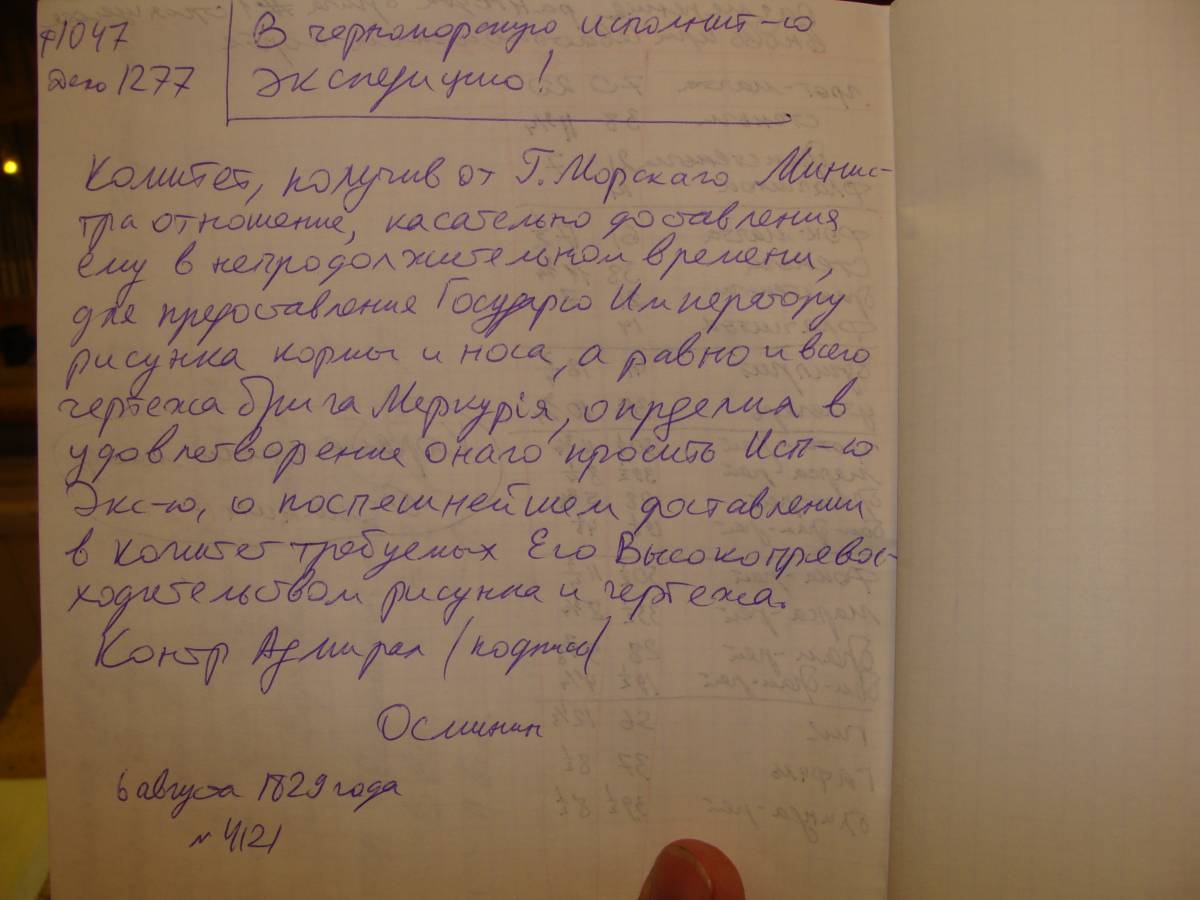 ф1047
Дело 1277
В черноморскую исполнит-ю
экспедицию!
Комитет, получив от Г. Морскаго Минис-
тра отношение, касательно доставления
ему в непродолжительном времени,
для предоставления Государю Императору
рисунка кормы и носа, а равно и всего
чертежа брига Меркурiя, опрделил в
удовлетворение онаго просить Исп-ю
Экс-ю, о поспешнейшем доставлении
в комитет требуемых Его Высокопревос-
ходительством рисунка и чертежа.
Контр Адмирал (подпись)
Осминин
6 августа 1829 года
№ 4121